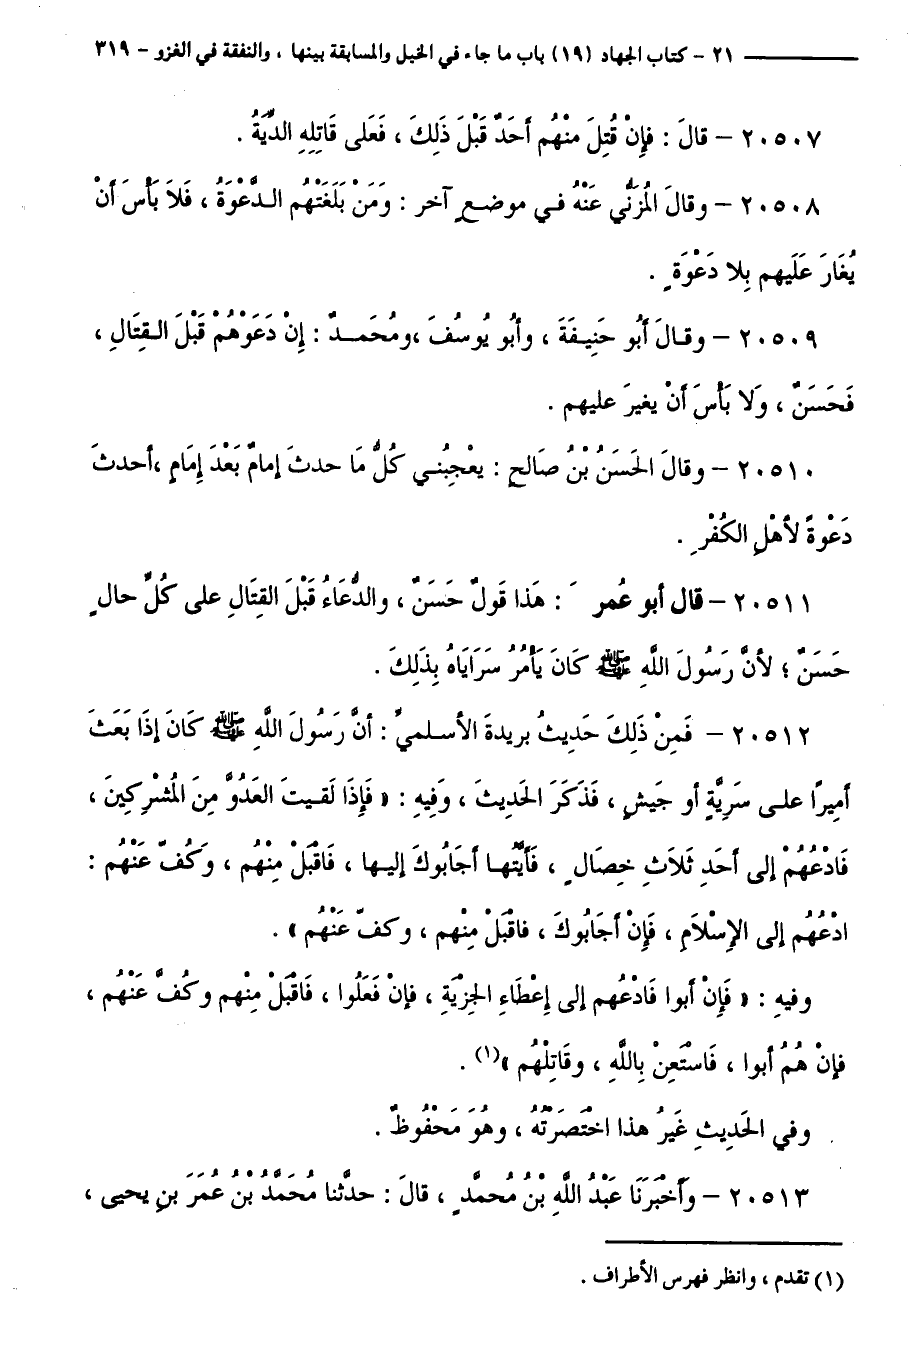 ٢١ - كتاب الجهاد (١٩) باب ما جاء في الخيل والمسابقة بينها ، والنفقة في الغزو - ٣١٩
٢٠٥٠٧ – قالَ : فإِنْ قُتِلَ منْهُم أحَدٌ قَبْلَ ذَلِكَ ، فَعَلى قَاتِلِهِ الدِّيَةُ .
٢٠٥٠٨ – وقالَ المُزَنِّي عَنْهُ فـي موضـعٍ آخر : ومَنْ بَلَغَتْهُم الـدَّعْوَةُ ، فَلاَ بَأْسَ أَنْ
يُغَارَ عَلَيهم بِلا دَعْوَةٍ .
٢٠٥٠٩ – وقـالَ أَبُو حَنِيـفَةَ ، وأَبُو يُوسُفَ ،ومُحَمـدٌ : إِنْ دَعَوْهُمْ قَبْلَ الـقِتَالِ ،
فَحَسَنٌ ، وَلا بَأْسَ أَنْ يغيرَ عليهم .
٢٠٥١٠ – وقالَ الحَسَنُ بْنُ صَالحٍ : يعْجِبُنـي كُلُّ مَا حدثَ إمامٌ بَعْدَ إِمَامٍ ،أحدثَ
دَعْوةً لأهْلِ الكُفْرِ .
٢٠٥١١ – قال أبو عُمر َ : هَذا قَولٌ حَسَنٌ ، والدُّعَاءُ قَبْلَ القتَالِ على كُلِّ حالٍ
حَسَنٌ ؛ لأنَّ رَسُولَ اللَّهِ ﷺ كَانَ يَأْمُرُ سَرَايَاهُ بِذَلِكَ .
٢٠٥١٢ – فَمِنْ ذَلِكَ حَدِيثُ بريدةَ الأسـلميِّ : أنَّ رَسُولَ اللَّهِ ﷺ كَانَ إِذَا بَعَثَ
أمِيرًا علـى سَرِيَّةٍ أو جَيشٍ ، فَذَكَرَ الحَديثَ ، وَفِيهِ : « فَإِذَا لَقـيتَ العَدُوَّ مِنَ المُشْرِكِينَ ،
فَادْعُهُمْ إلى أَحَدِ ثَلاَثِ خِصَالٍ ، فَأَيَّتُهـا أجَابُوكَ إليـها ، فَاقْبَلْ مِنْهُم ، وَكُفّ عَنْهُم :
ادْعُهُم إلى الإِسْلاَمِ ، فَإِنْ أجَابُوكَ ، فاقْبَلْ مِنْهم ، وكفّ عَنْهُم » .
وفيهِ : « فَإِنْ أبوا فَادْعُهم إلى إِعْطَاءِ الجِزْيَةِ ، فإنْ فَعَلُوا ، فَاقْبَلْ مِنْهم وكُفَّ عَنْهُم ،
فإنْ هُمُ أبوا ، فَاسْتَعِنْ بِاللَّهِ ، وقَاتِلْهُم »(١) .
وفي الحَدِيثِ غَيرُ هذا اخْتَصَرْتُهُ ، وهُوَ مَحْفُوظٌ .
٢٠٥١٣ – وأَخْبَرَنَا عَبْدُ اللَّهِ بْنُ مُحمَّدٍ ، قالَ : حدثَّنا مُحَمَّدُ بْنُ عُمَرَ بنِ يحيى ،
(١) تقدم ، وانظر فهرس الأطراف .